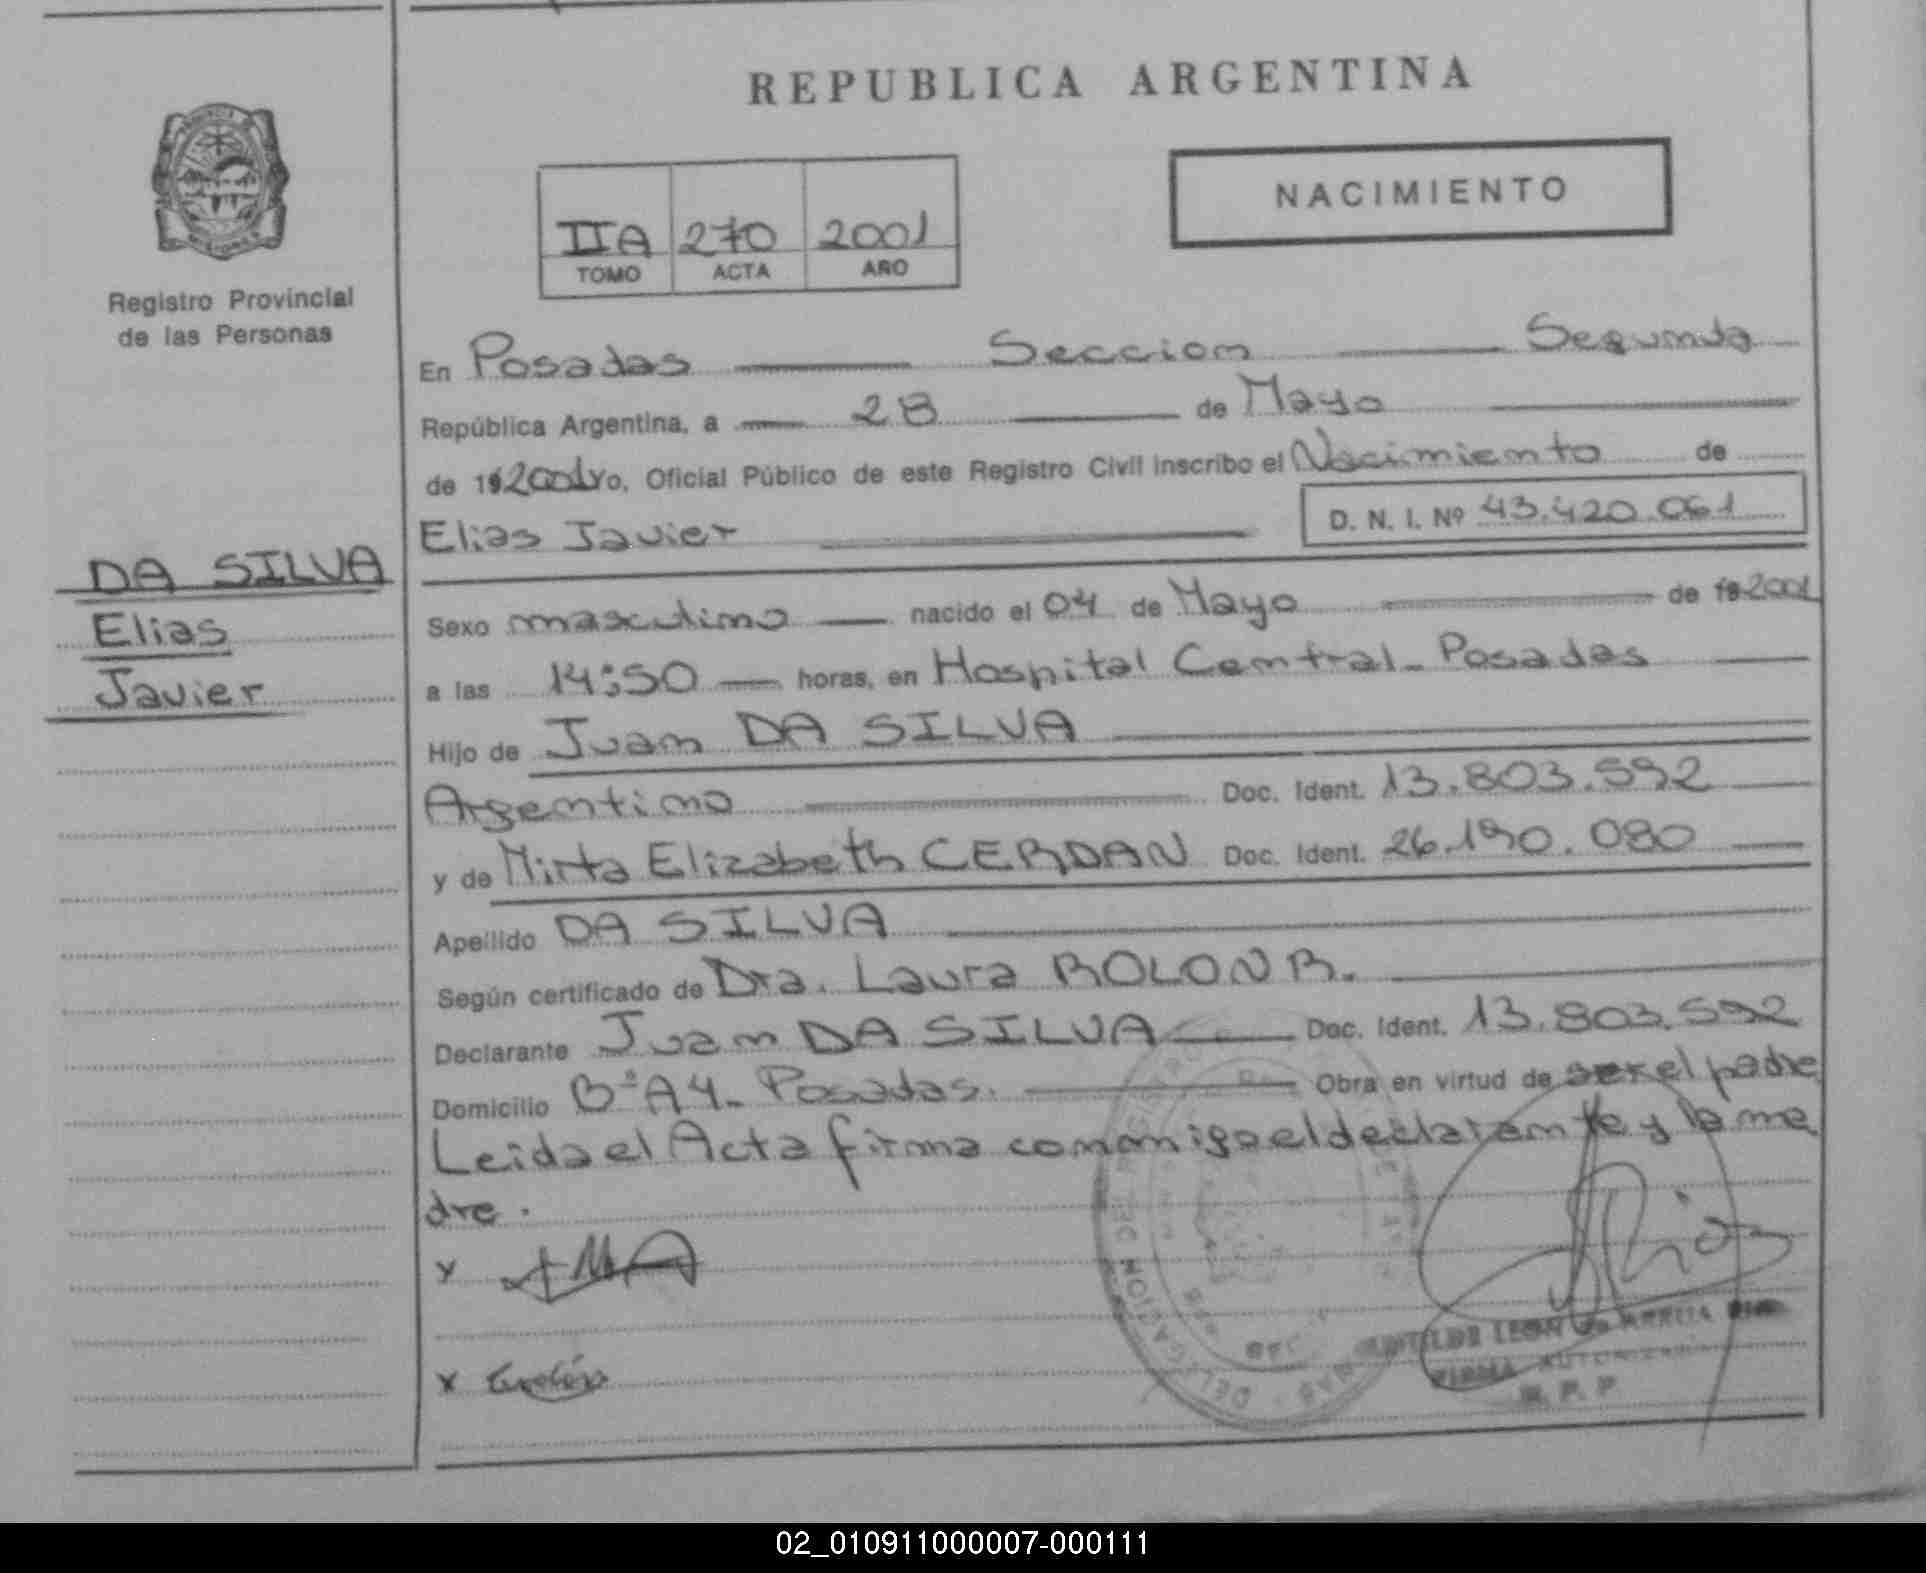 REPUBLICA ARGENTINA
NACIMIENTO
IIA 270 2001
TOMO ACTA AÑO
Registro Provincial
de las Personas
En Posadas Seccion Segunda
República Argentina, a 28 de Mayo
de 192001 yo, Oficial Público de este Registro Civil inscribo el Nacimiento de
Elias Javier D. N. I. Nº 43.420.061
DA SILVA
Elias
Javier
Sexo masculino nacido el 04 de Mayo de 192001
a las 14:50 horas, en Hospital Central - Posadas
Hijo de Juan DA SILVA
Argentino Doc. Ident. 13.803.592
y de Mirta Elizabeth CERDAN Doc. Ident. 26.190.080
Apellido DA SILVA
Según certificado de Dra. Laura ROLON R.
Declarante Juan DA SILVA Doc. Ident. 13.803.592
Domicilio Bº A4 - Posadas. Obra en virtud de ser el padre
Leida el Acta firma conmigo el declarante y la ma
dre.
x
x
FIRMA AUTORIZADA
R. P. P
02_010911000007-000111